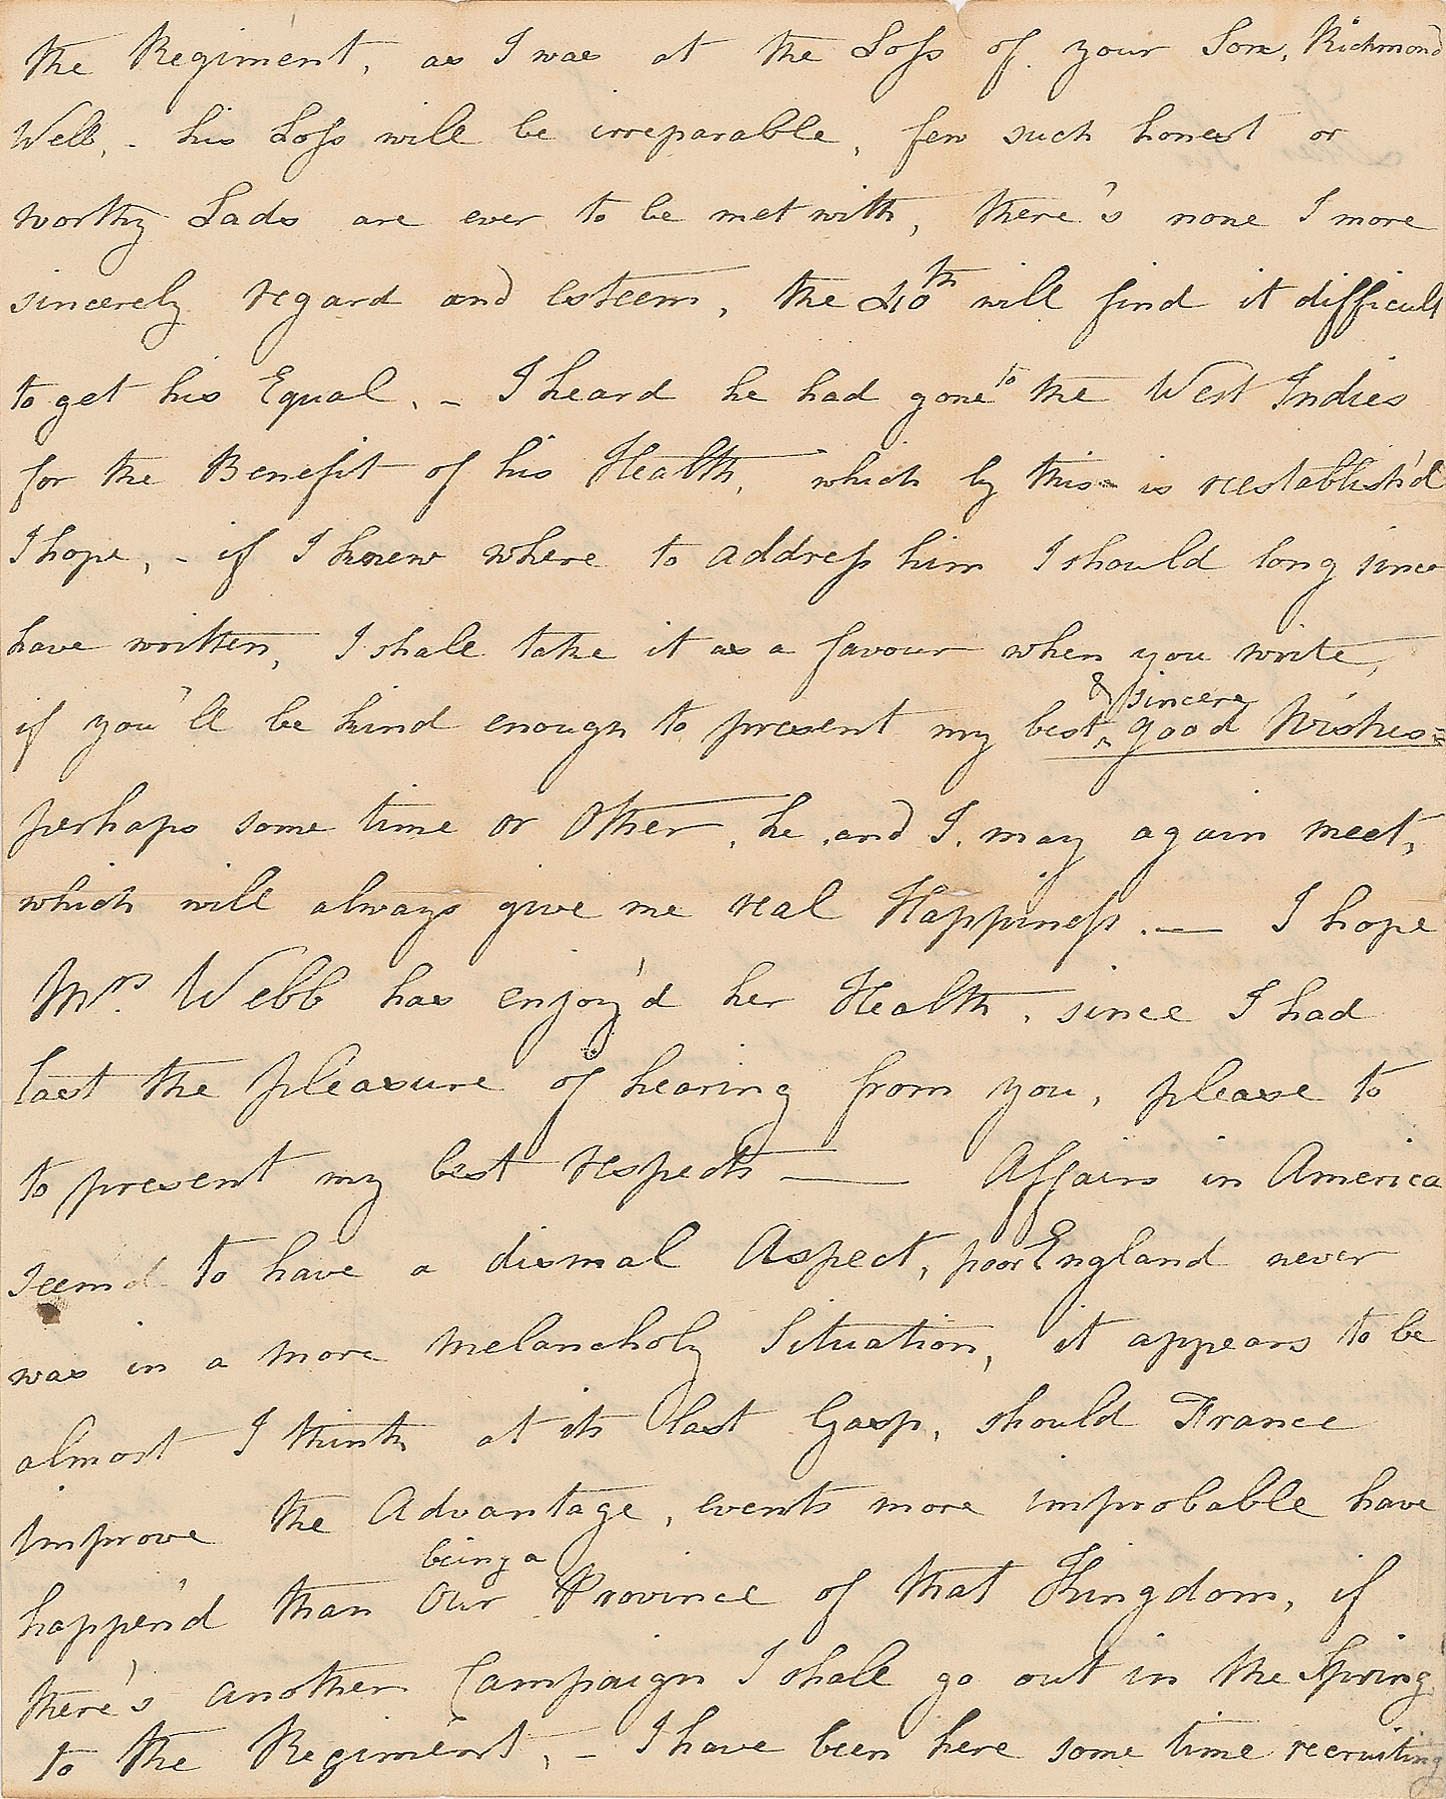 the Regiment, as I was at the Loss of your Son, Richmond
Webb, - his Loss will be irreparable, few such honest or
worthy Lads are ever to be met with, there's none I more
sincerely regard and esteem, the 40th will find it difficult
to get his Equal, - I heard he had gone to the West Indies
for the Benefit of his Health, which by this is reestablish'd
I hope, - if I knew where to address him I should long since
have written, I shall take it as a favour when you write,
if you'll be kind enough to present my best & sincere good Wishes=
perhaps some time or Other, he, and I, may again meet,
which will always give me real Happiness. — I hope
Mrs. Webb has enjoy'd her Health, since I had
last the pleasure of hearing from you, please to
to present my best respects — Affairs in America
seem'd to have a dismal Aspect, poor England never
was in a more melancholy Situation, it appears to be
almost I think at its last Gasp, should France
improve the Advantage, events more improbable have
happen'd than Our being a Province of that Kingdom, if
there's another Campaign I shall go out in the Spring
to the Regiment, - I have been here some time recruiting